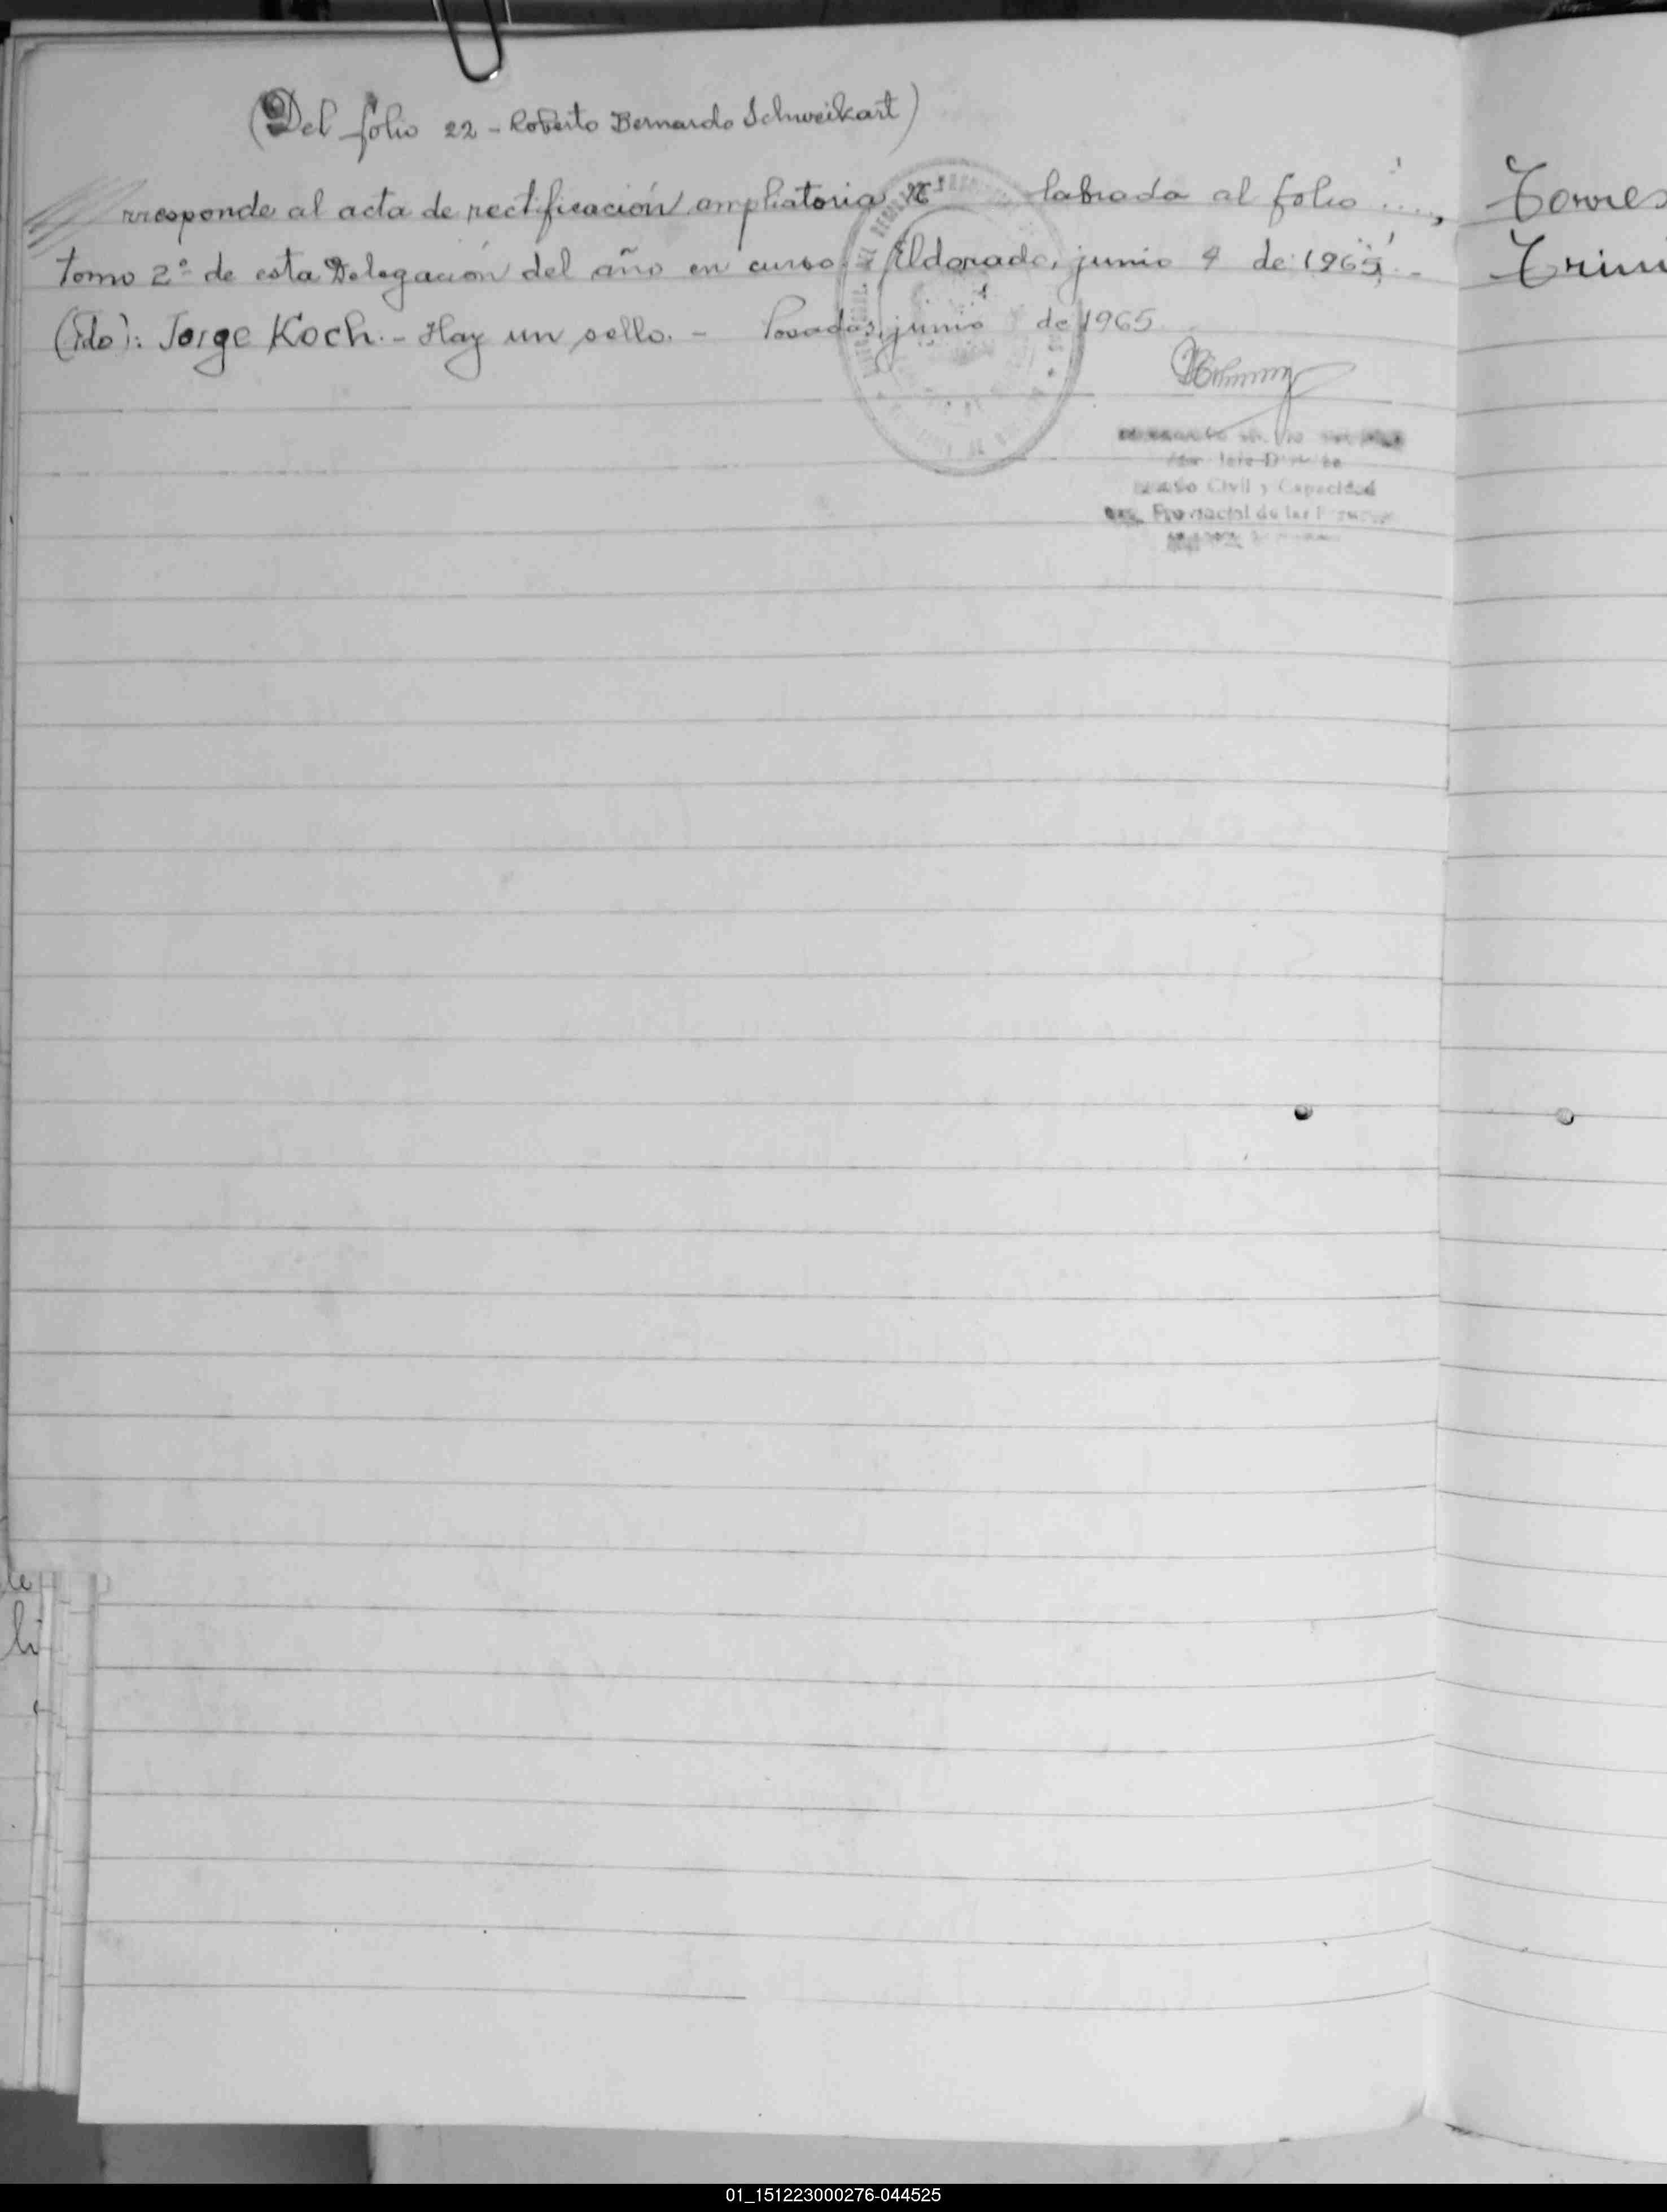 (Del folio 22 - Roberto Bernardo Schweikart)
rresponde al acta de rectificación ampliatoria Nº labrada al folio ....,
tomo 2º de esta Delegación del año en curso.- Eldorado, junio 4 de 1965.-
(Fdo): Jorge Koch.- Hay un sello.- Posadas, junio de 1965
Civil y Capacidad
Provincial de las
Torres
Trini
li
01_151223000276-044525